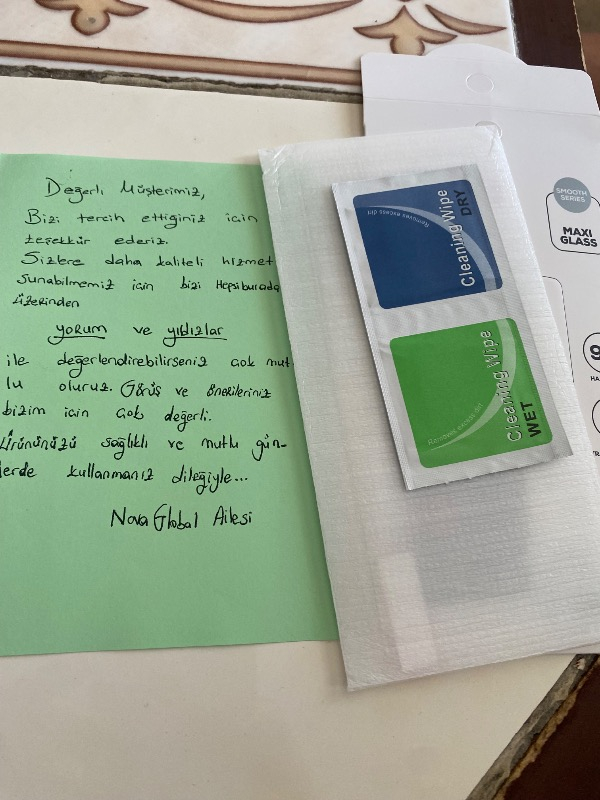 Değerli Müşterimiz,
Bizi tercih ettiğiniz için
teşekkür ederiz.
Sizlere daha kaliteli hizmet
sunabilmemiz için bizi Hepsiburada
üzerinden
yorum ve yıldızlar
ile değerlendirebilirseniz çok mut-
lu oluruz. Görüş ve önerileriniz
bizim için çok değerli.
Ürününüzü sağlıklı ve mutlu gün-
lerde kullanmanız dileğiyle...
Nova Global Ailesi
Removes excess dirt
Cleaning Wipe
DRY
Removes excess dirt
Cleaning Wipe
WET
SMOOTH
SERIES
MAXI
GLASS
9
HA